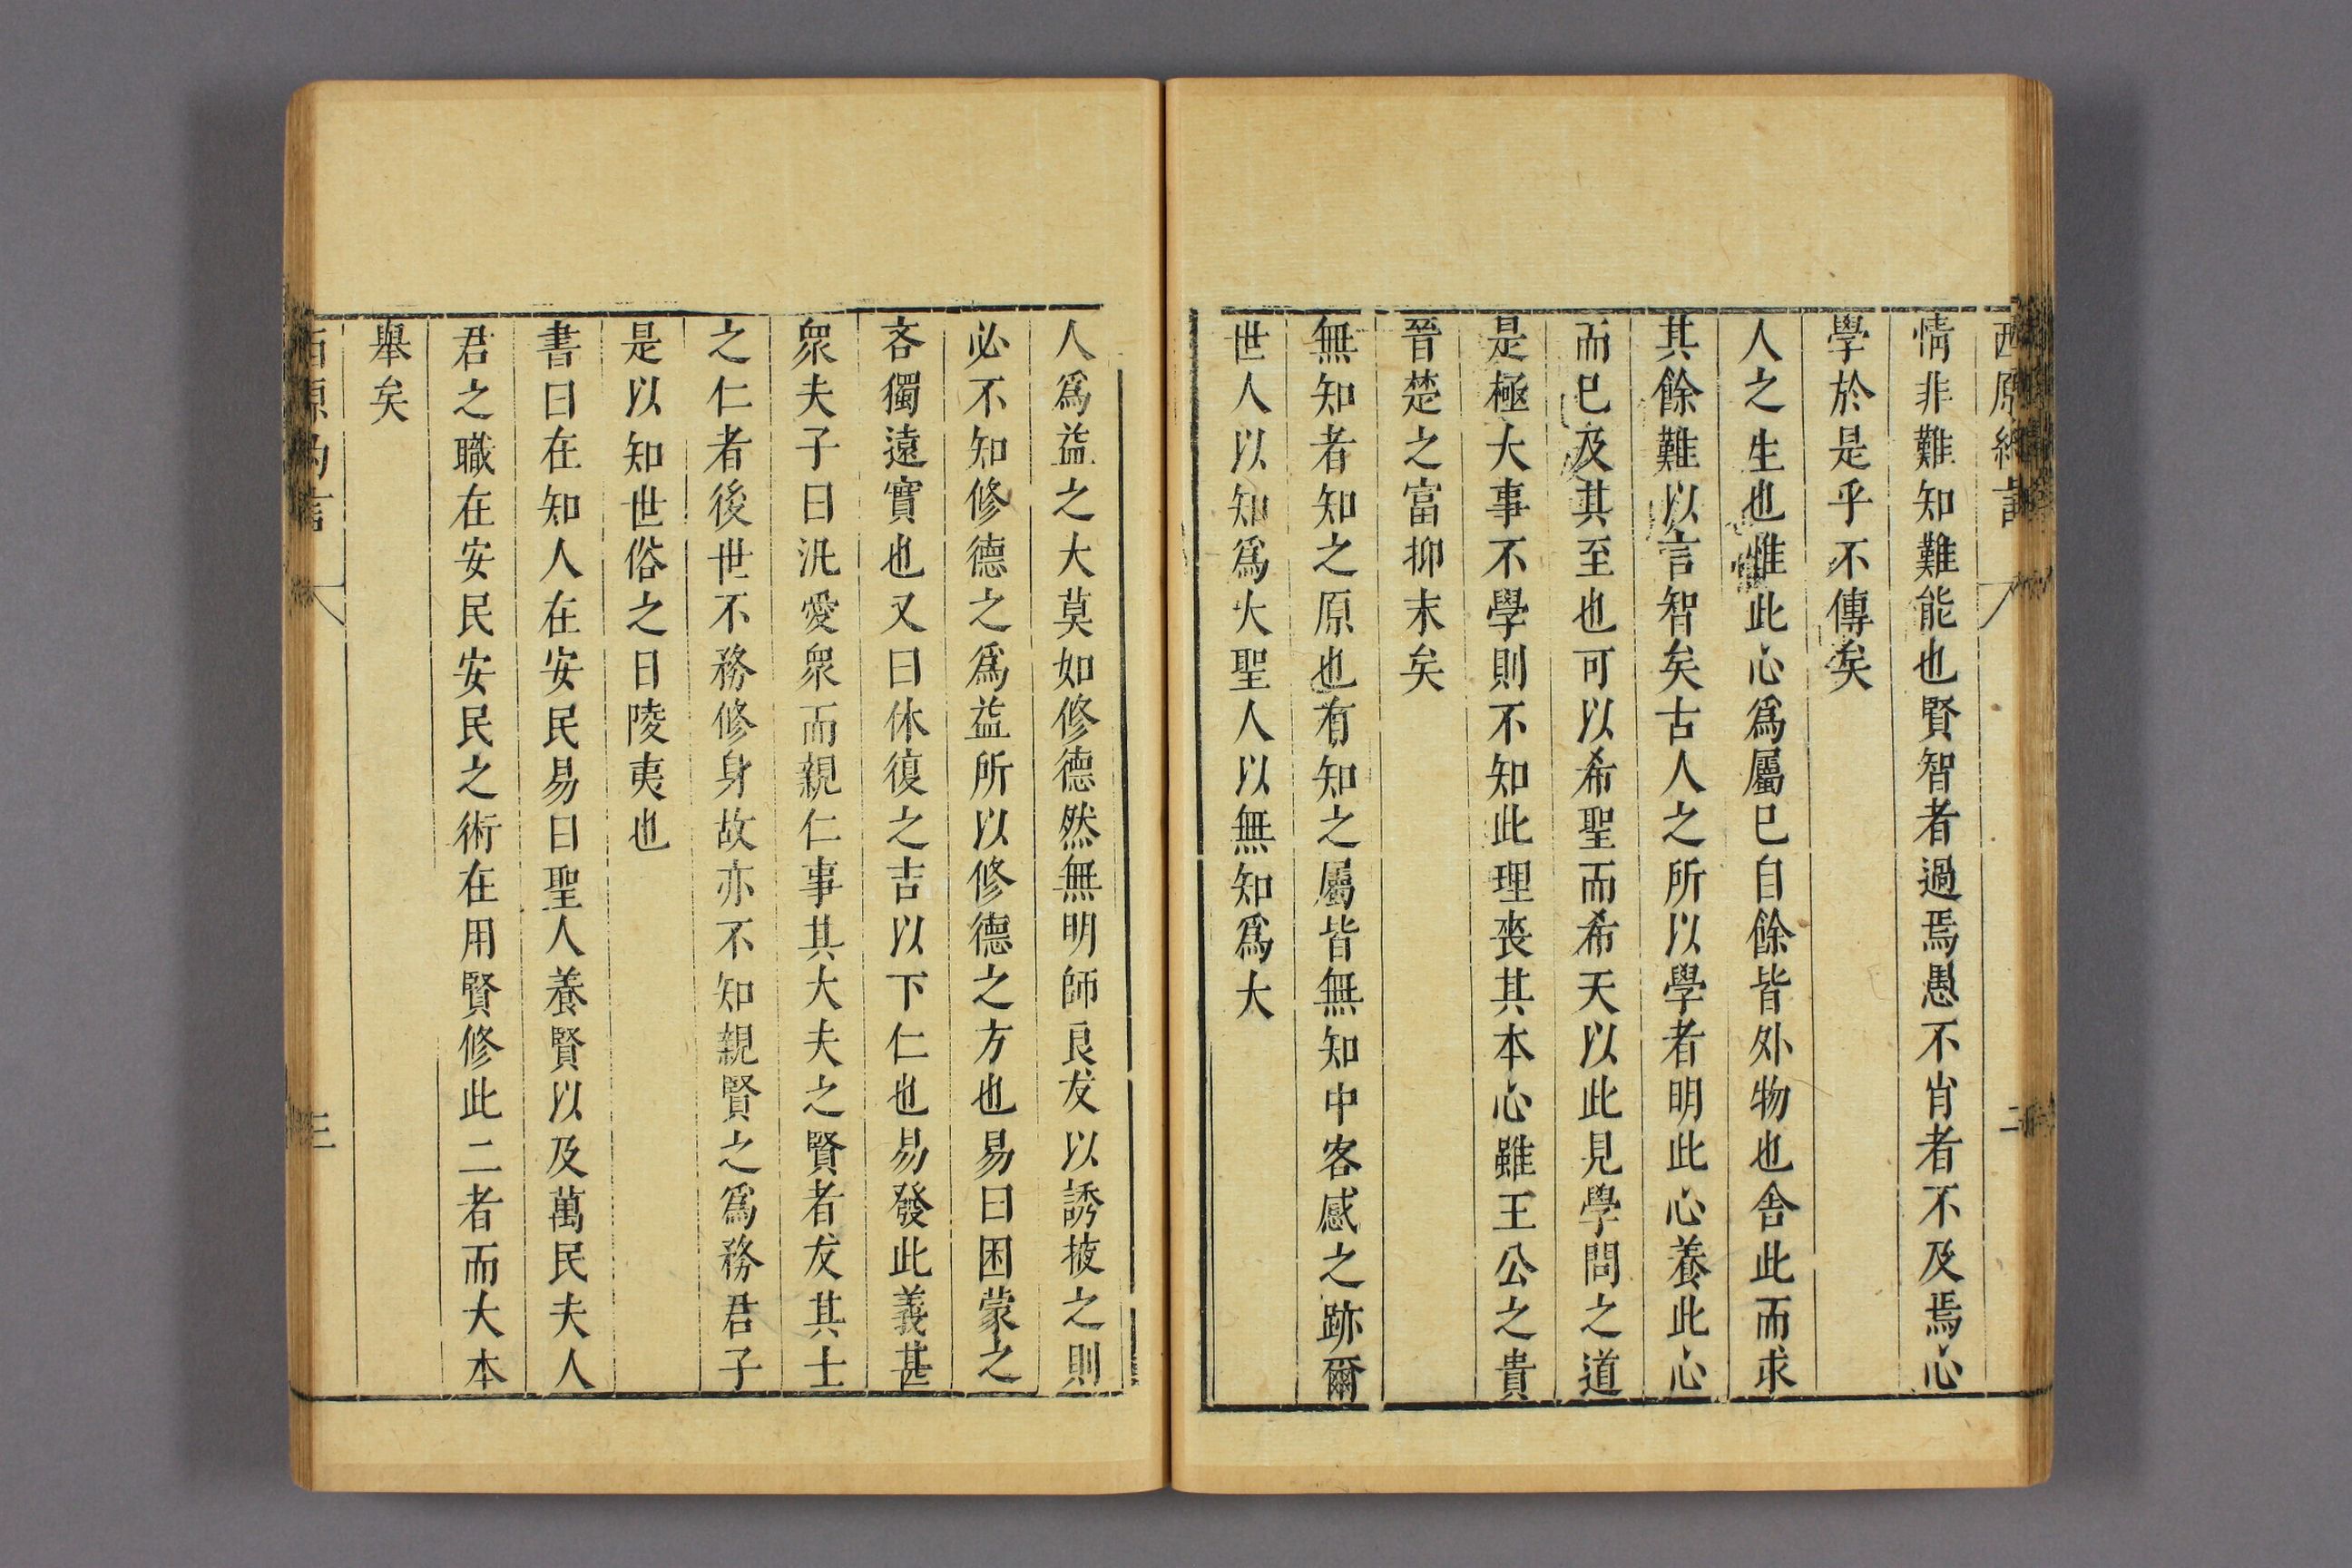 西原約言 二
情非難知難能也賢智者過焉愚不肖者不及焉心
學於是乎不傳矣
人之生也惟此心爲屬已自餘皆外物也舍此而求
其餘難以言智矣古人之所以學者明此心養此心
而已及其至也可以希聖而希天以此見學問之道
是極大事不學則不知此理喪其本心雖王公之貴
晉楚之富抑末矣
無知者知之原也有知之屬皆無知中客感之跡爾
世人以知爲大聖人以無知爲大
人爲益之大莫如修德然無明師良友以誘掖之則
必不知修德之爲益所以修德之方也易曰困蒙之
吝獨遠實也又曰休復之吉以下仁也易發此義甚
衆夫子曰汎愛衆而親仁事其大夫之賢者友其士
之仁者後世不務修身故亦不知親賢之爲務君子
是以知世俗之日陵夷也
書曰在知人在安民易曰聖人養賢以及萬民夫人
君之職在安民安民之術在用賢修此二者而大本
舉矣
西原約言 三